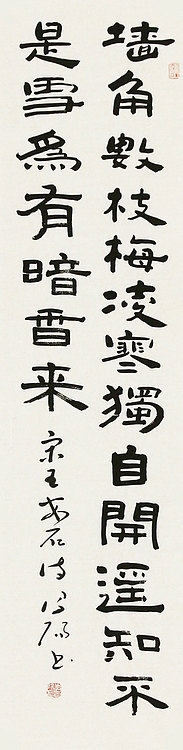 墙角數枝梅凌寒獨自開遥知不
是雪爲有暗香来宋王安石诗书